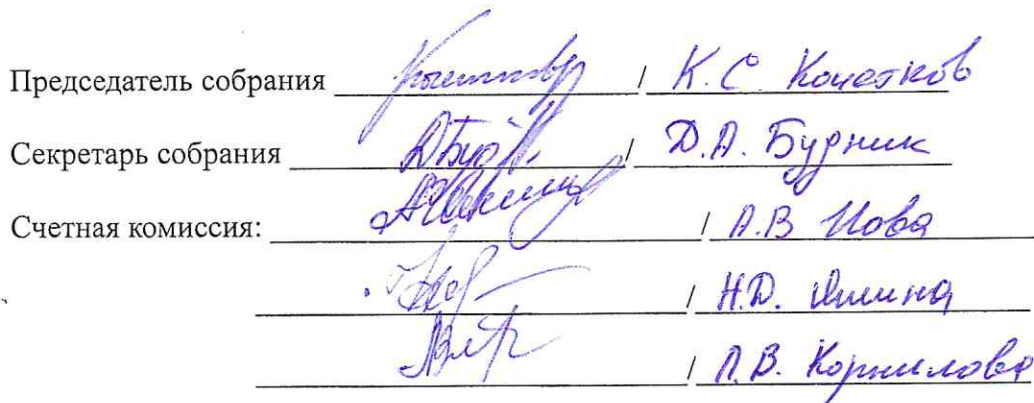 Председатель собрания / К.С. Кочетков
Секретарь собрания / Д.А. Будник
Счетная комиссия: / А.В
/ Н.Д.
/ Л.В. Корнилова